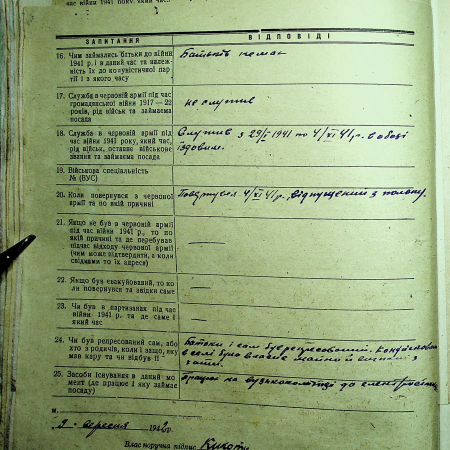 вас війни 1941 року, який час.
ЗАПИТАННЯ ВІДПОВІДІ
16. Чим займались батьки до війни
1941 р. і в даний час та належ-
ність їх до комуністичної пар-
тії і з якого часу
Батьків немає
17. Служба в червоній армії під час
громадянської війни 1917—22
років, рід військ та займаєма
посада
не служив
18. Служба в червоній армії під
час війни 1941 року, який час,
рід військ, останнє військове
звання та займаєма посада
Служив з 29/ 1941 по 4/XI 41 р. в обозі
їздовим.
19. Військова спеціальність
№ (ВУС)
20. Коли повернувся з червоної
армії та по якій причині
Повернувся 4/XI 41 р. відпущений з полону.
21. Якщо не був в червоній армії
під час війни 1941 р., то по
якій причині та де перебував
підчас відходу червоної армії
(чим може підтвердити, а коли
свідками то їх адреси)
—
—
22. Якщо був евакуйований, то ко-
ли повернувся та звідки саме
—
23. Чи був в партизанах під час
війни 1941 р. та де саме і
який час
—
24. Чи був репресований сам, або
хто з родичів, коли і за що, яку
мав кару та чи відбув її
Батьки і сам був репресований.
в селі було власне майно й вигнані з
хати.
25. Засоби існування в даний мо-
мент (де працює і яку займає
посаду)
працює на вузькоколійці
м.
9 - вересня 1942 р.
Власноручна підпис